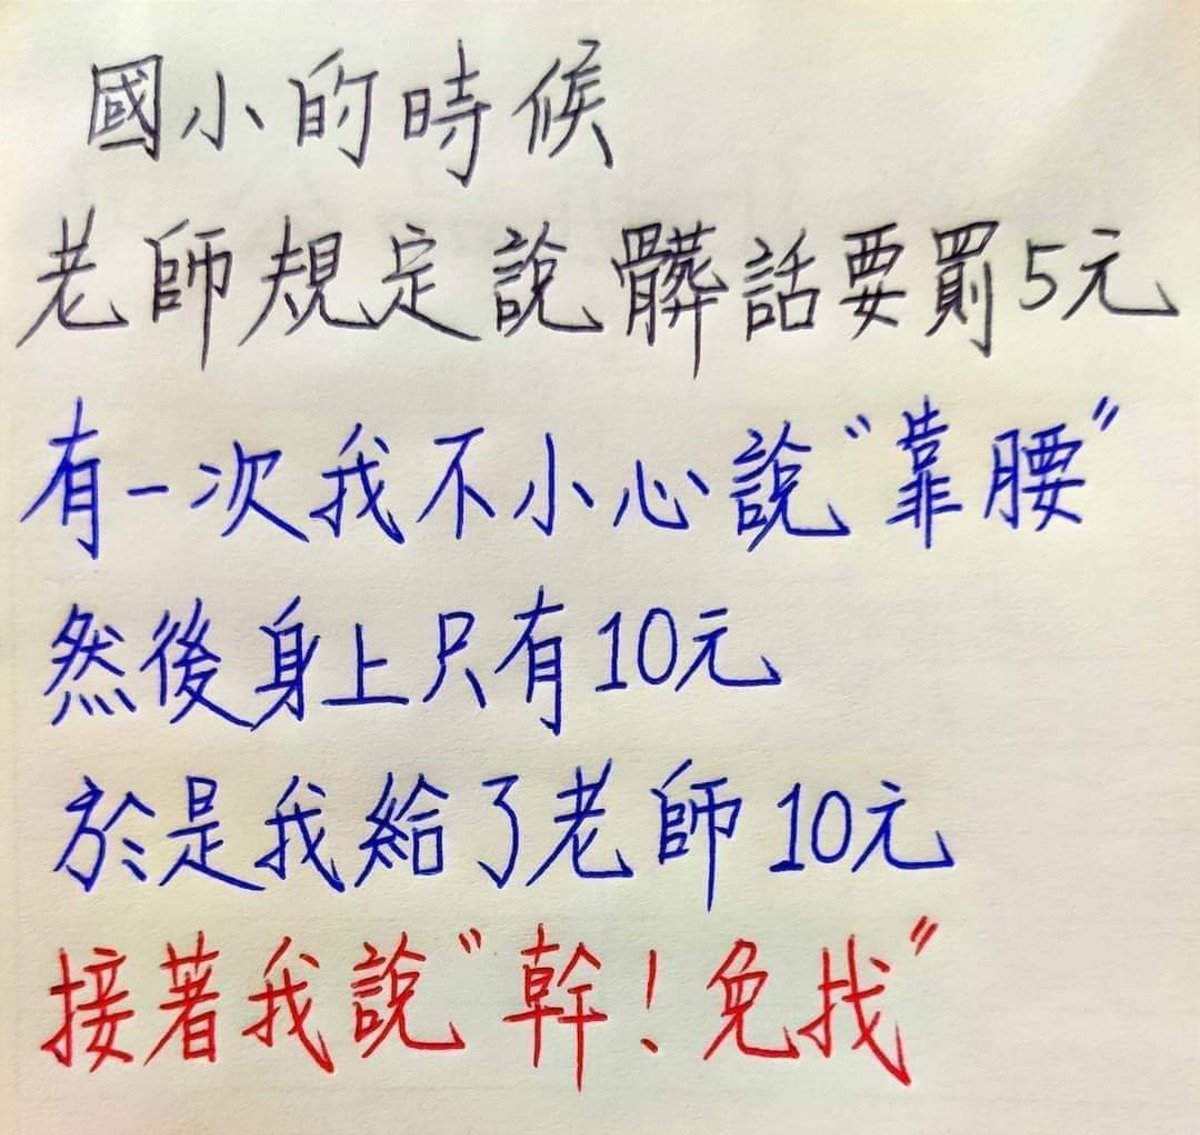 國小的時候
老師規定說髒話要罰5元
有一次我不小心說"靠腰"
然後身上只有10元
於是我給了老師10元
接著我說"幹!免找"